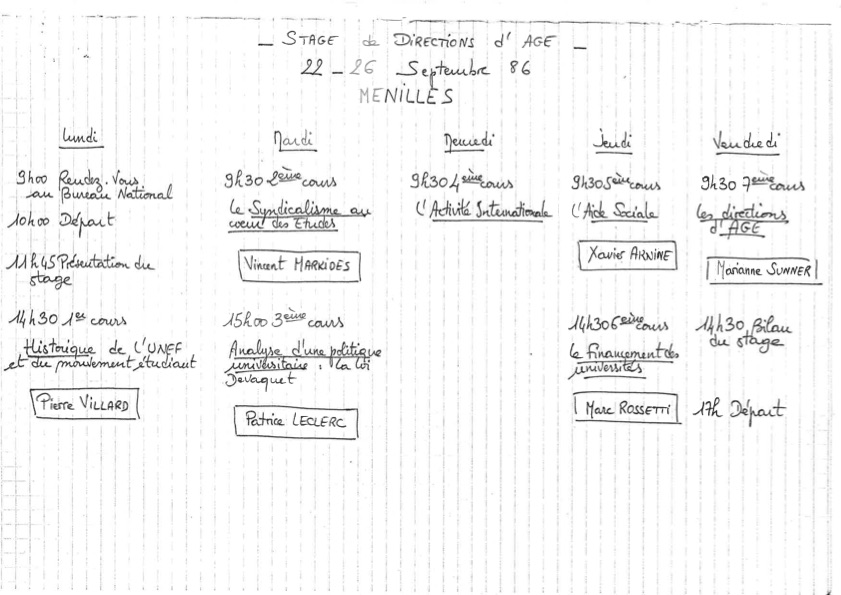 _ STAGE de DIRECTIONS d'AGE _
22 _ 26 Septembre 86
MENILLES
Lundi
9h00 Rendez-Vous
au Bureau National
10h00 Départ
11h45 Présentation du
stage
14h30 1er cours
Historique de l'UNEF
et du mouvement étudiant
Pierre VILLARD
Mardi
9h30 2ème cours
le Syndicalisme au
coeur des Etudes
Vincent MARKIDES
15h00 3ème cours
Analyse d'une politique
universitaire : la loi
Devaquet
Patrice LECLERC
Mercredi
9h30 4ème cours
l'Activité Internationale
Jeudi
9h30 5ème cours
l'Aide Sociale
Xavier ARNINE
14h30 6ème cours
le financement des
universités
Marc ROSSETTI
Vendredi
9h30 7ème cours
les directions
d'AGE
Marianne SUNNER
14h30 Bilan
du stage
17h Départ